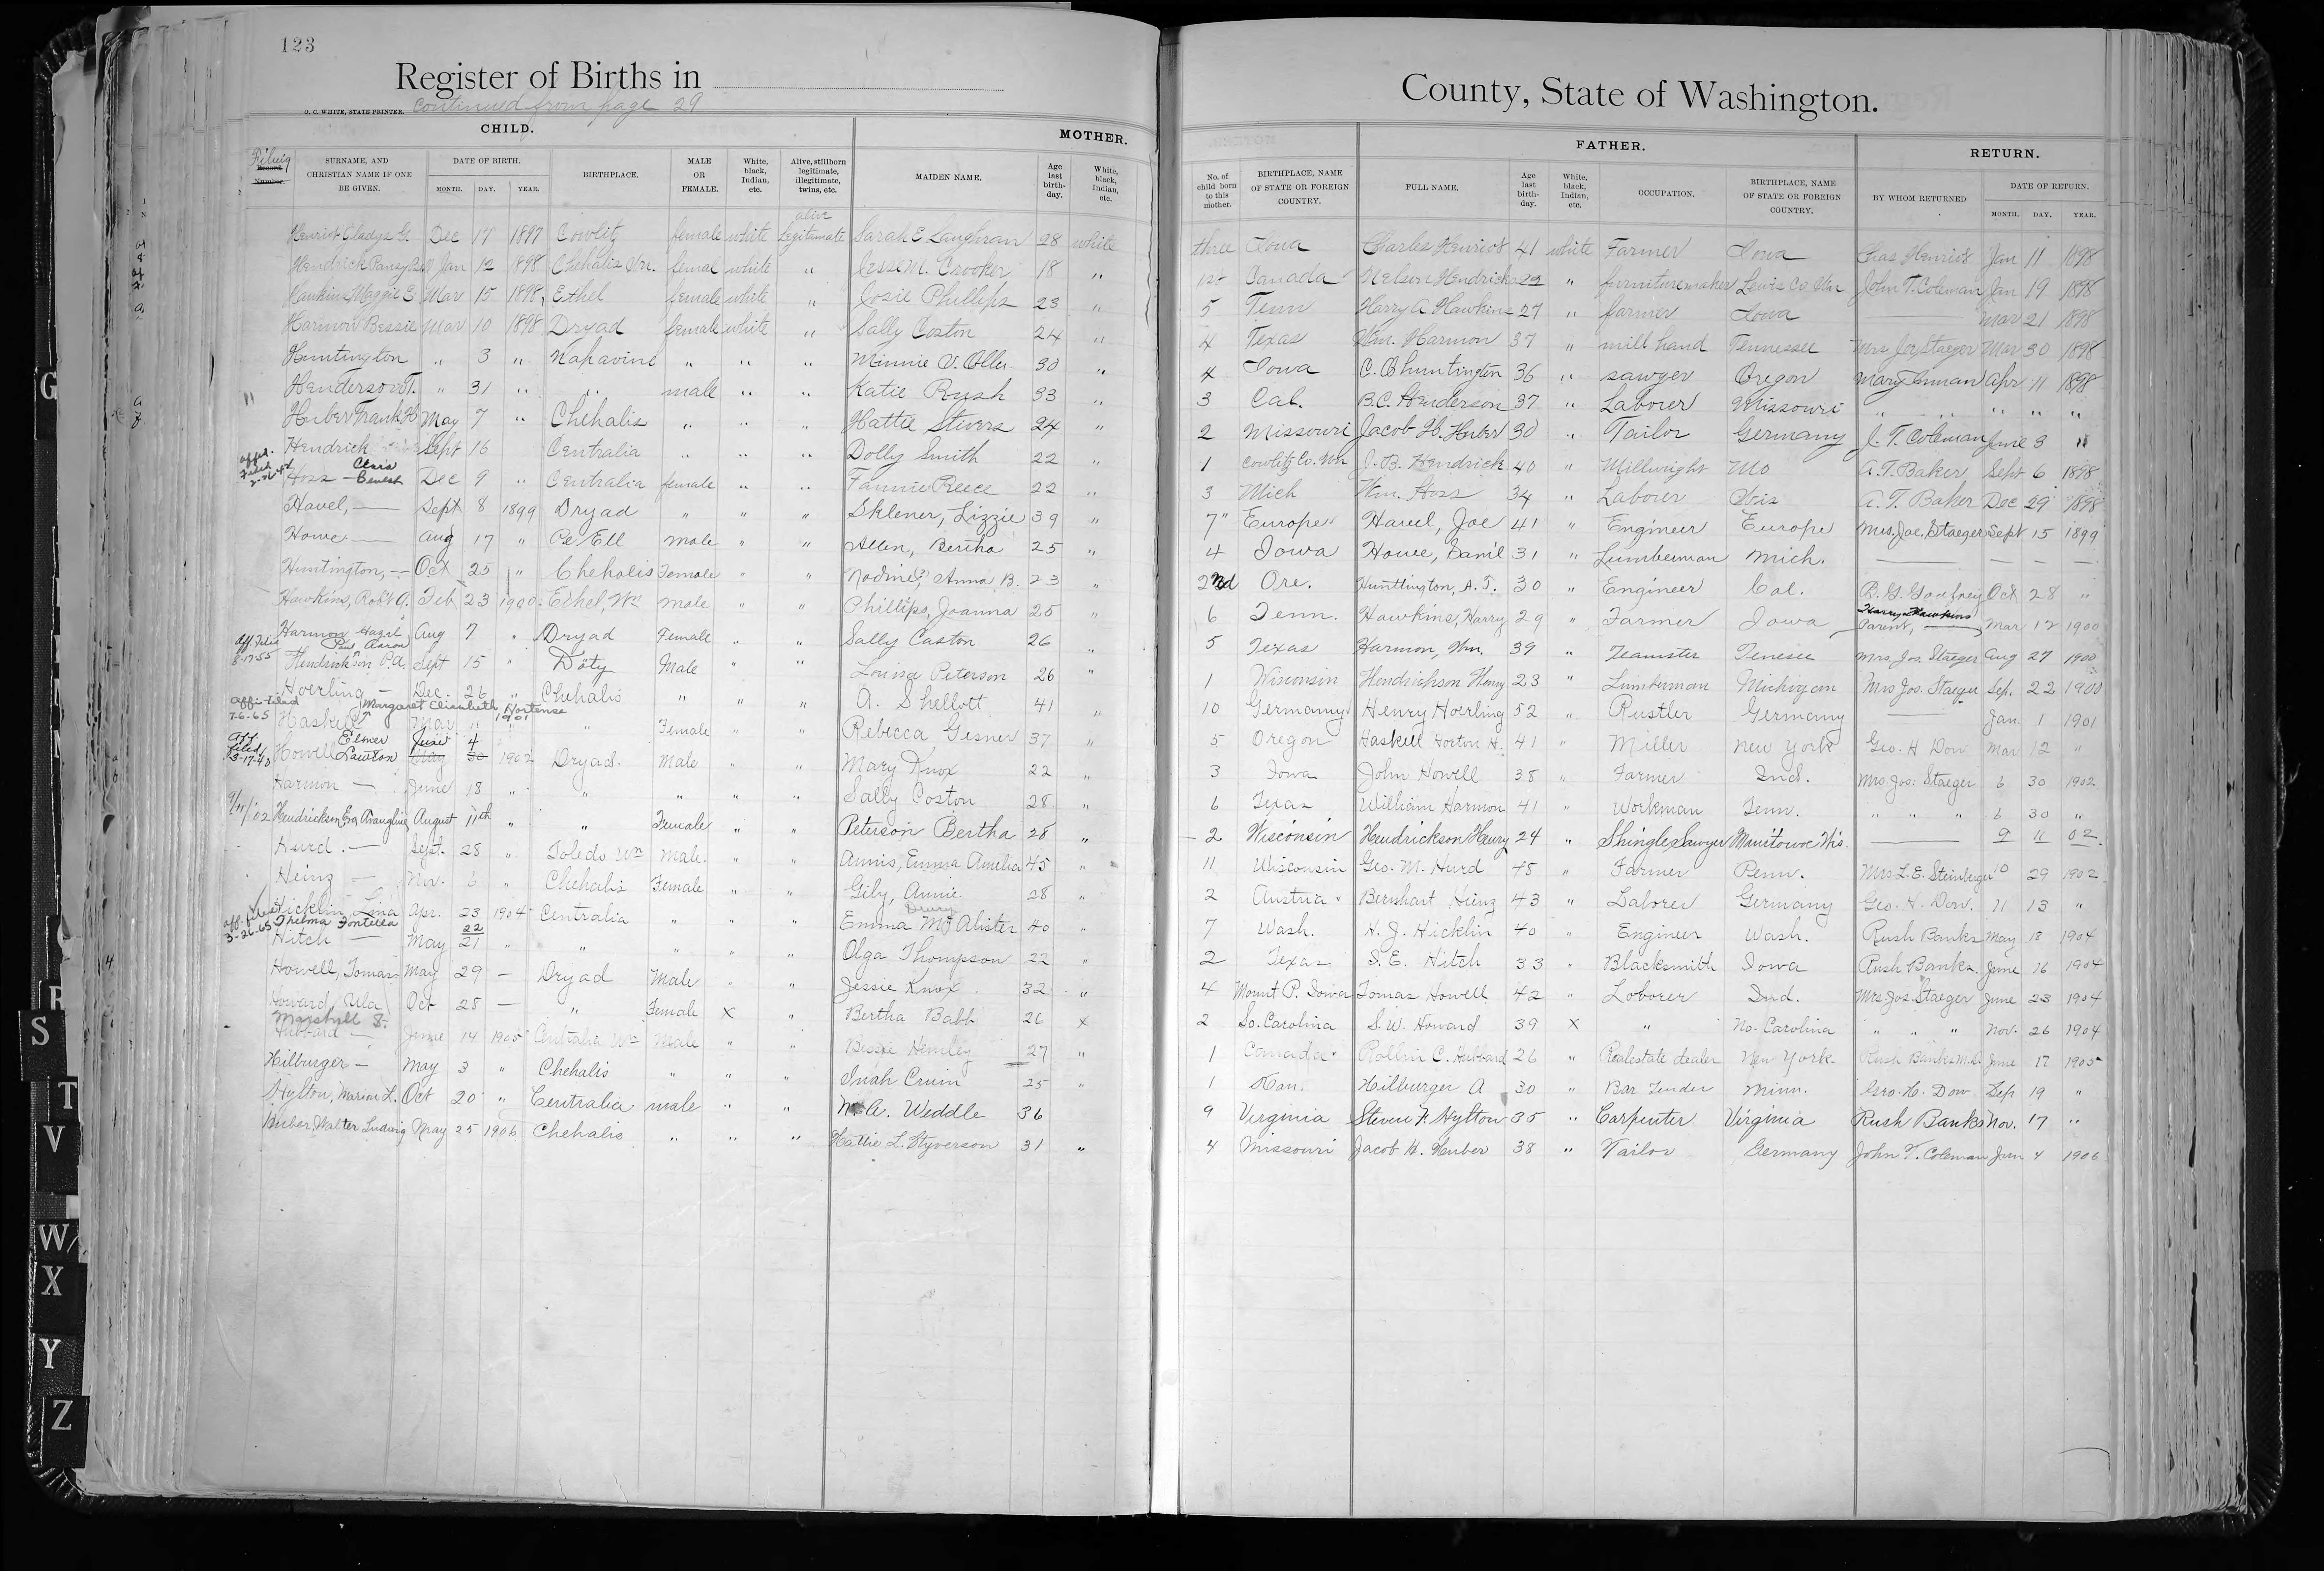 123
Register of Births in
County, State of Washington.
O. C. WHITE, STATE PRINTER. continued from page 29
CHILD. MOTHER. FATHER. RETURN.
Filing Record Number. SURNAME, AND CHRISTIAN NAME IF ONE BE GIVEN. DATE OF BIRTH. MONTH. DAY. YEAR. BIRTHPLACE. MALE OR FEMALE. White, black, Indian, etc. Alive, stillborn legitimate, illegitimate, twins, etc. MAIDEN NAME. Age last birthday. White, black, Indian, etc. No. of child born to this mother. BIRTHPLACE, NAME OF STATE OR FOREIGN COUNTRY. FULL NAME. Age last birthday. White, black, Indian, etc. OCCUPATION. BIRTHPLACE, NAME OF STATE OR FOREIGN COUNTRY. BY WHOM RETURNED DATE OF RETURN. MONTH. DAY. YEAR.
Henriot Gladys G. Dec 17 1897 Cowlitz female white alive Legitamate Sarah E Laughran 28 white three Iowa Charles Henriot 41 white Farmer Iowa Chas Henriot Jan 11 1898
Hendrick Pansy Jan 12 1898 Chehalis Wn. femal white " Jesse M. Crooker 18 " 1st Canada Nelson Hendricks 22 " furnituremaker Lewis Co Wn John T. Coleman Jan 19 1898
Hawkins, Maggie E. Mar 15 1898, Ethel female white " Josie Phillips 23 " 5 Tenn Harry A Hawkins 27 " farmer Iowa Mar 21 1898
Harmon Bessie Mar 10 1898 Dryad female white " Sally Coston 24 " 4 Texas Wm. Harmon 37 " mill hand Tennessee Mrs Joe Staeger Mar 30 1898
Huntington " 3 " Napavine " " " Minnie V. Oller 30 " 4 Iowa C. B Huntington 36 " sawyer Oregon Mary Inman Apr 11 1898
Henderson T. " 31 " " male " " Katie Rush 33 " 3 Cal. B.C. Henderson 37 " Laborer Missouri " " " " "
Huber Frank H May 7 " Chehalis " " " Hattie Stivers 24 " 2 Missouri Jacob H. Huber 30 " Tailor Germany J. T. Coleman June 3 "
Hendrick Sept 16 Centralia " " " Dolly Smith 22 1 Cowlitz Co. Wn J. B. Hendrick 40 " Millwright Mo A. T. Baker Sept 6 1898
Hoss — Clara Dec 9 " Centralia female " " Fannie Reece 22 " 3 Mich Wm. Hoss 34 " Laborer A. T. Baker Dec 29 1898
Havel, — Sept 8 1899 Dryad " " " Sklener, Lizzie 39 " 7" Europe Havel, Joe 41 " Engineer Europe Mrs. Joe. Staeger Sept 15 1899
Howe — Aug 17 " Pe Ell male " " Allen, Bertha 25 " 4 Iowa Howe, Danil 31 " Lumberman Mich. — — — —
Huntington, — Oct 25 " Chehalis Female " " Nodine? Anna B. 23 " 2nd Ore. Hunttington, A. T. 30 " Engineer Cal. Oct 28 "
Hawkins, Rob't A. Feb 23 1900. Ethel, Wn male " " Phillips, Joanna 25 " 6 Tenn. Hawkins, Harry 29 " Farmer Iowa Harry Hawkins Parent, Mar 12 1900
Harmon Hazil Aug 7 " Dryad Female " " Sally Caston 26 " 5 Texas Harmon, Wm. 39 " Teamster Tenesee Mrs. Jos. Staeger Aug 27 1900
Aff Filed 8-17-55 Paul Aaron Hendrickson P.A. Sept 15 " Doty Male " " Louisa Peterson 26 " 1 Wisconsin Hendrickson Henry 23 " Lumberman Michigan Mrs Jos. Staeger Sep. 22 1900
Hoerling — Dec. 26 " Chehalis " " " A. Shellott 41 " 10 Germany Henry Hoerling 52 " Rustler Germany — Jan. 1 1901
Affi-filed 7-6-65 Margaret Elizabeth Hortense Haskell May " 1901 " Female " " Rebecca Gesner 37 " 5 Oregon Haskell Horton H. 41 " Miller New York Geo. H Dow Mar 12 "
Aff Filed 3-17-40 Howell Elmer Lawton June 4 May 30 1902 Dryad. Male " " Mary Knox 22 3 Iowa John Howell 38 " Farmer Ind. Mrs Jos: Staeger 6 30 1902
Harmon — June 18 " " " " " Sally Coston 28 " 6 Texas William Harmon 41 " Workman Tenn. " " " 6 30 "
9/11/'02 Hendrickson, Eva Avangline, August 11th " " Female " " Peterson Bertha 28 " 2 Wisconsin Hendrickson Henry 24 " Shingle Sawyer Manitowoc Wis. — 9 11 02
Hurd. — Sept. 28 " Toledo Wn Male. " " Annis, Emma Amelia 45 " 11 Wisconsin Geo. M. Hurd 48 " Farmer Penn. Mrs. L. E. Steinberger 29 1902
Heinz — Nov. 6 " Chehalis Female " " Gily, Annie. 28 " 2 Austria Bernhart Hinz 43 " Laborer Germany Geo. H. Dow. 11 13 "
Hicklin, Lina Apr. 23 1904 Centralia " " " Emma Drury McAlister 40 " 7 Wash. H. J. Hicklin 40 " Engineer Wash. Rush Banks May 18 1904
aff. filed 3-26-65 Thelma Fontella Hitch — May 22 21 " " " " " Olga Thompson 22 " 2 Texas S. E. Hitch 33 " Blacksmith Iowa Rush Banks. June 16 1904
Howell, Tomas May 29 — Dryad Male " " Jessie Knox 32 " 4 Mount P. Iowa Tomas Howell 42 " Loborer Ind. Mrs Jos Staeger June 23 1904
Howard, Ula Oct 28 — " Female X " Bertha Babb 26 X 2 So. Carolina S. W. Howard 39 X " No. Carolina " " " Nov. 26 1904
Marshall S. Hubbard — June 14 1905 Centralia Wn Male " " Bessie Hemley 27 " 1 Canada Rollin C. Hubbard 26 " Realestate dealer New York Rush Banks M.D. June 17 1905
Hilburger — May 3 " Chehalis " " " Inah Cruin 25 " 1 Kan. Hilburger A 30 " Bar Tender Minn. Geo. H. Dow Sep 19 "
Hylton, Marion L. Oct 20 " Centralia male " " M. A. Weddle 36 9 Virginia Steven F. Hylton 35 " Carpenter Virginia Rush Banks Nov. 17 "
Huber, Walter Ludwig May 25 1906 Chehalis " " " Hattie L. Styverson 31 " 4 Missouri Jacob H. Huber 38 " Tailor Germany John T. Coleman Jun 4 1906
G
R
S
T
V
W
X
Y
Z